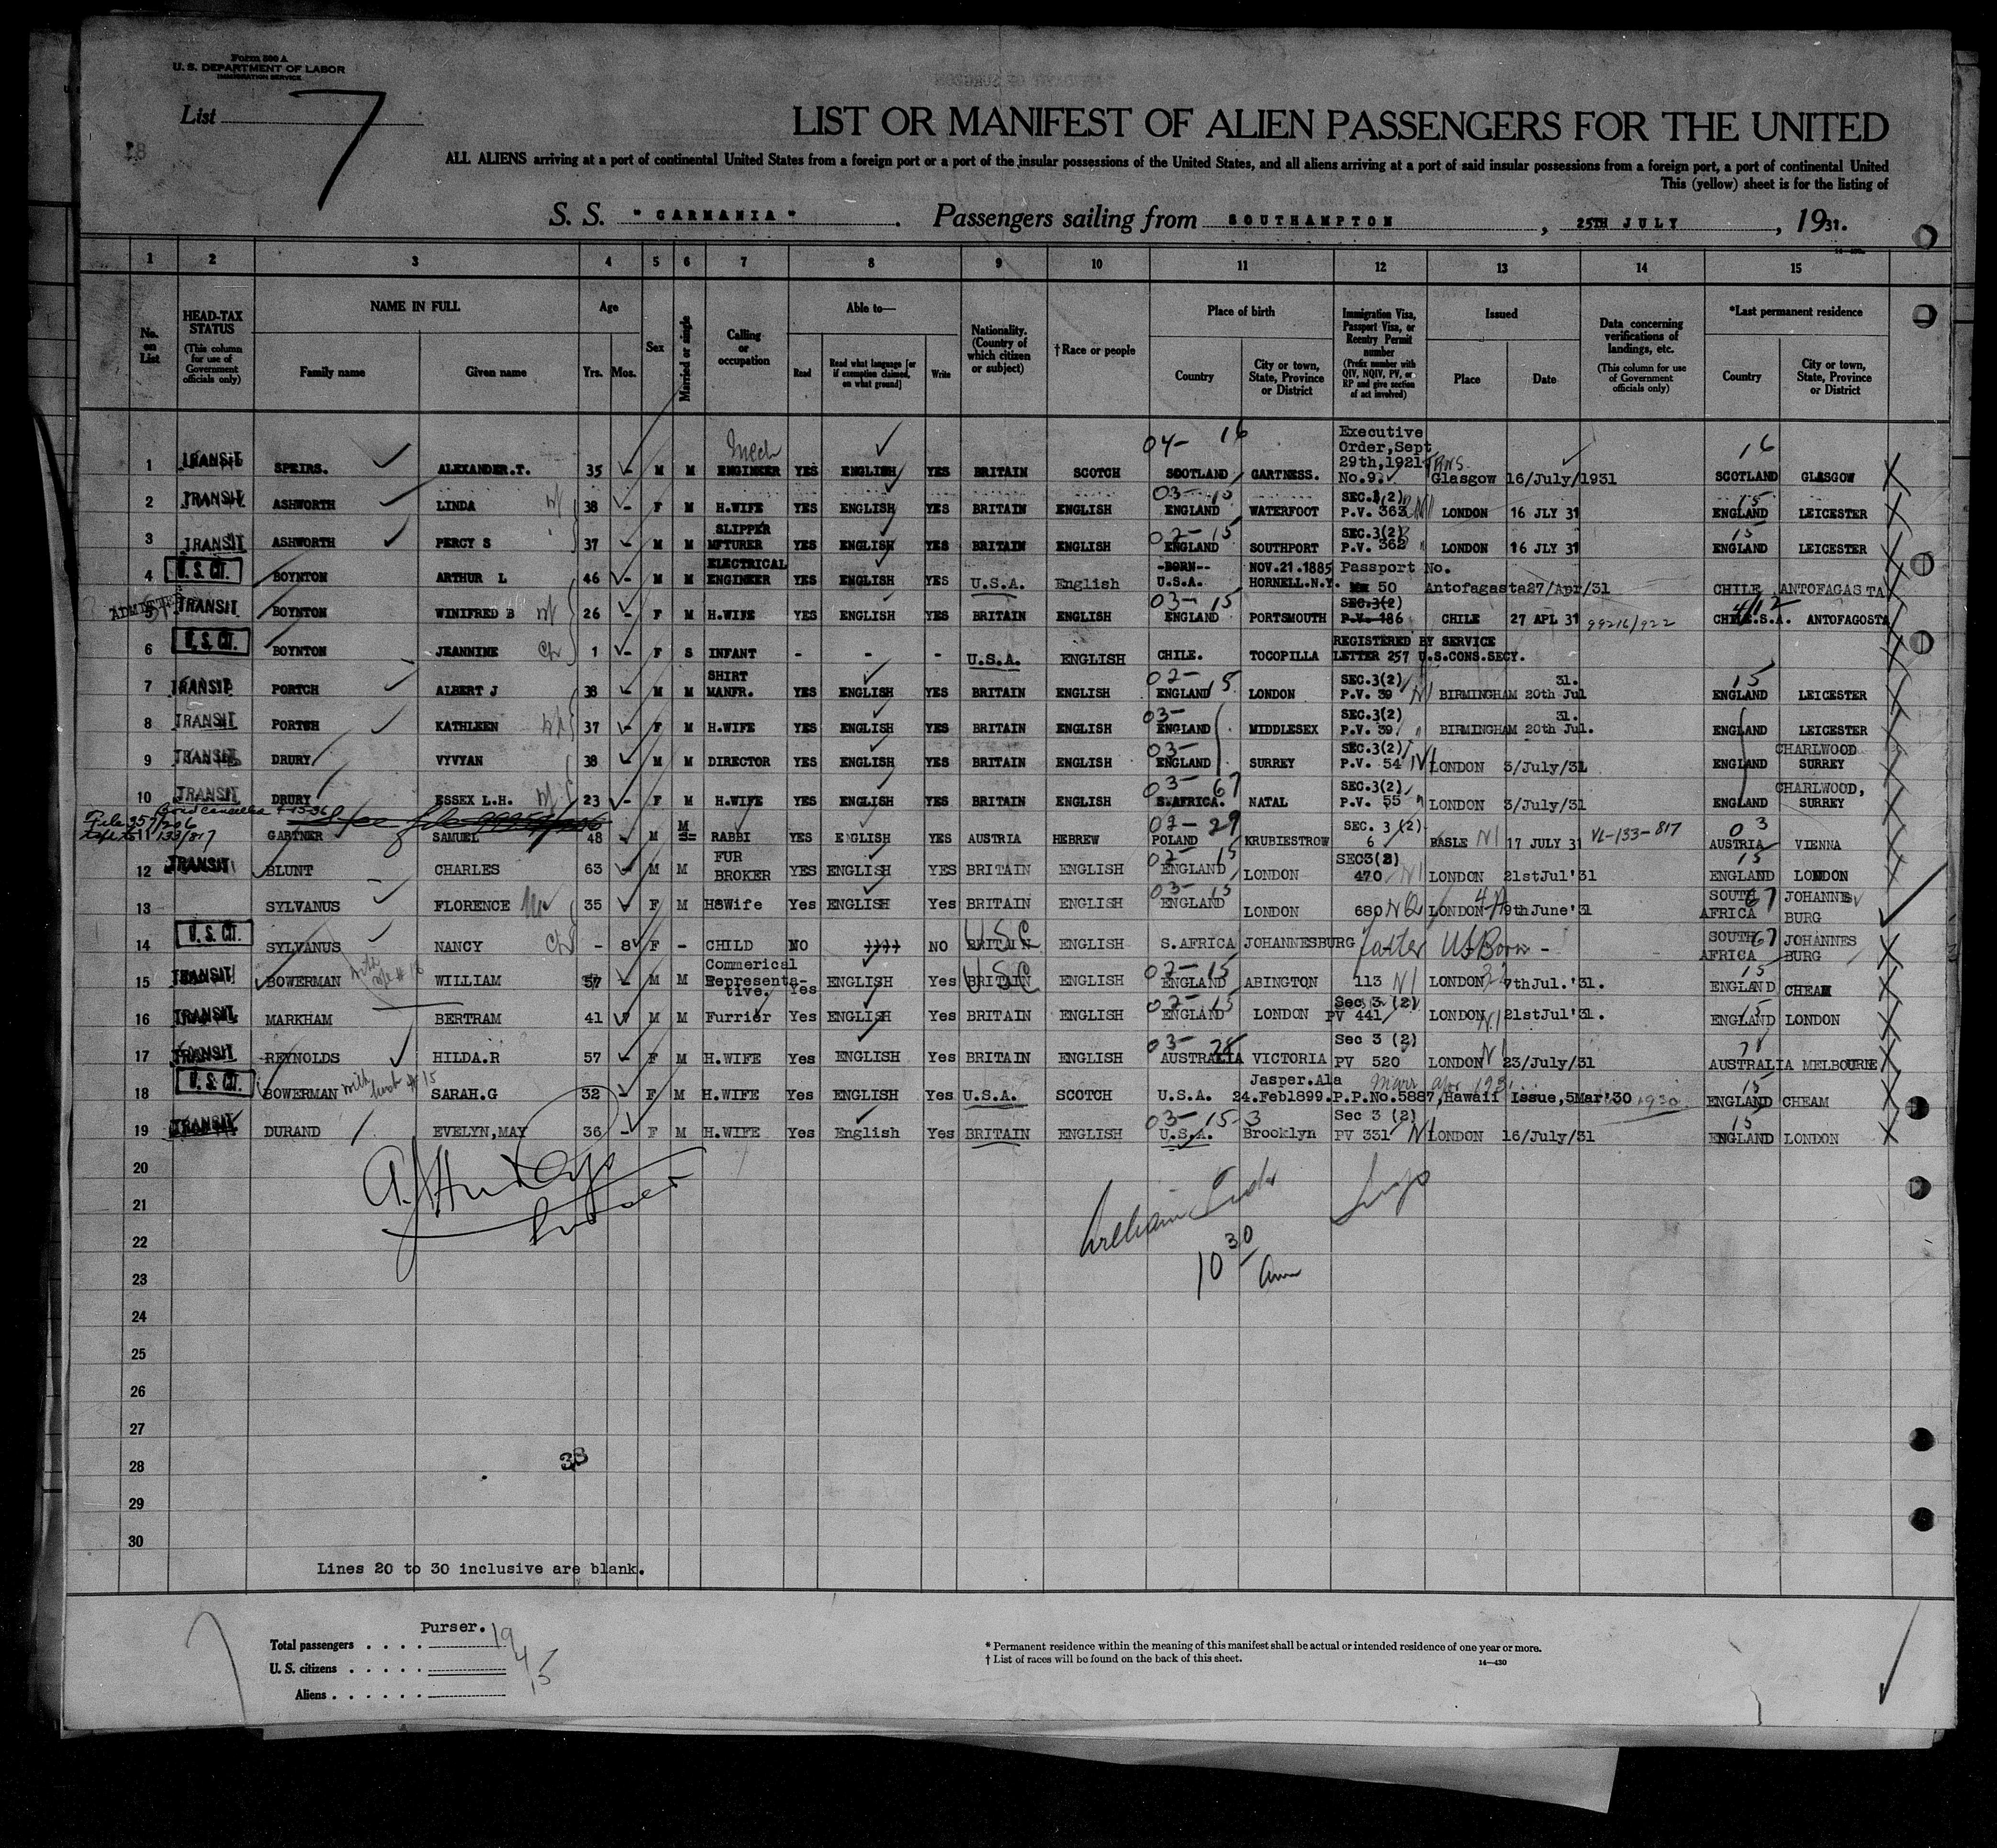 Form 500 A
U. S. DEPARTMENT OF LABOR
IMMIGRATION SERVICE
List 7
LIST OR MANIFEST OF ALIEN PASSENGERS FOR THE UNITED
ALL ALIENS arriving at a port of continental United States from a foreign port or a port of the insular possessions of the United States, and all aliens arriving at a port of said insular possessions from a foreign port, a port of continental United
This (yellow) sheet is for the listing of
S. S. " CARMANIA " . Passengers sailing from SOUTHAMPTON , 25TH JULY , 1931.
1 2 3 4 5 6 7 8 9 10 11 12 13 14 15
No. on List
HEAD-TAX STATUS (This column for use of Government officials only)
NAME IN FULL Family name Given name
Age Yrs. Mos.
Sex
Married or single
Calling or occupation
Able to— Read Read what language [or if exemption claimed, on what ground] Write
Nationality. (Country of which citizen or subject)
†Race or people
Place of birth Country City or town, State, Province or District
Immigration Visa, Passport Visa, or Reentry Permit number (Prefix number with QIV, NQIV, PV, or RP and give section of act involved)
Issued Place Date
Data concerning verifications of landings, etc. (This column for use of Government officials only)
*Last permanent residence Country City or town, State, Province or District
1 TRANSIT SPEIRS. ALEXANDER.T. 35 - M M Mech ENGINEER YES ENGLISH YES BRITAIN SCOTCH 04- 16 SCOTLAND GARTNESS. Executive Order,Sept 29th,1921 No.9. Glasgow 16/July/1931 16 SCOTLAND GLASGOW
2 TRANSIT ASHWORTH LINDA W 38 - F M H.WIFE YES ENGLISH YES BRITAIN ENGLISH 03-15 ENGLAND WATERFOOT SEC.3(2) P.V. 363 LONDON 16 JLY 31 15 ENGLAND LEICESTER
3 TRANSIT ASHWORTH PERCY S 37 - M M SLIPPER MFTURER YES ENGLISH YES BRITAIN ENGLISH 02-15 ENGLAND SOUTHPORT SEC.3(2) P.V. 362 LONDON 16 JLY 31 15 ENGLAND LEICESTER
4 U.S.CIT. BOYNTON ARTHUR L 46 - M M ELECTRICAL ENGINEER YES ENGLISH YES U.S.A. English -BORN-- U.S.A. NOV.21.1885 HORNELL.N.Y. Passport No. 50 Antofagasta 27/Apr/31 CHILE ANTOFAGASTA
ADMITTED 5 TRANSIT BOYNTON WINIFRED B W 26 - F M H.WIFE YES ENGLISH YES BRITAIN ENGLISH 03-15 ENGLAND PORTSMOUTH SEC.3(2) P.V. 186 CHILE 27 APL 31 99216/922 CHILE.S.A. ANTOFOGASTA
6 U.S.CIT. BOYNTON JEANNINE Ch 1 - F S INFANT - - - U.S.A. ENGLISH CHILE. TOCOPILLA REGISTERED BY SERVICE LETTER 257 U.S.CONS.SECY.
7 TRANSIT PORTCH ALBERT J 38 - M M SHIRT MANFR. YES ENGLISH YES BRITAIN ENGLISH 02-15 ENGLAND LONDON SEC.3(2) P.V. 39 BIRMINGHAM 20th Jul 31. 15 ENGLAND LEICESTER
8 TRANSIT PORTCH KATHLEEN 37 - F M H.WIFE YES ENGLISH YES BRITAIN ENGLISH 03- ENGLAND MIDDLESEX SEC.3(2) P.V. 39 BIRMINGHAM 20th Jul. 31. ENGLAND LEICESTER
9 TRANSIT DRURY VYVYAN 38 M M DIRECTOR YES ENGLISH YES BRITAIN ENGLISH 03- ENGLAND SURREY SEC.3(2) P.V. 54 LONDON 3/July/31 ENGLAND CHARLWOOD SURREY
10 TRANSIT DRURY ESSEX L.H. W 23 - F M H.WIFE YES ENGLISH YES BRITAIN ENGLISH 03- 67 S.AFRICA. NATAL SEC.3(2) P.V. 55 LONDON 3/July/31 ENGLAND CHARLWOOD, SURREY
GARTNER SAMUEL 48 M M RABBI YES ENGLISH YES AUSTRIA HEBREW 02-29 POLAND KRUBIESTROW SEC. 3 (2) 6 BASLE 17 JULY 31 VL-133-817 03 AUSTRIA VIENNA
12 TRANSIT BLUNT CHARLES 63 M M FUR BROKER YES ENGLISH YES BRITAIN ENGLISH 02-15 ENGLAND LONDON SEC3(2) 470 LONDON 21stJul'31 15 ENGLAND LONDON
13 SYLVANUS FLORENCE 35 F M HsWife Yes ENGLISH Yes BRITAIN ENGLISH 03-15 ENGLAND LONDON 680 LONDON 9th June'31 SOUTH AFRICA 67 JOHANNES BURG
14 U.S.CIT. SYLVANUS NANCY Ch - 8 F - CHILD NO NO BRITAIN USC ENGLISH S.AFRICA JOHANNESBURG father US Born - SOUTH AFRICA 67 JOHANNES BURG
15 TRANSIT BOWERMAN WILLIAM 57 M M Commerical Representa-tive. Yes ENGLISH Yes BRITAIN USC ENGLISH 02-15 ENGLAND ABINGTON 113 LONDON 7thJul.'31. 15 ENGLAND CHEAM
16 TRANSIT MARKHAM BERTRAM 41 M M Furrier Yes ENGLISH Yes BRITAIN ENGLISH 02-15 ENGLAND LONDON Sec 3 (2) PV 441 LONDON 21stJul'31. 15 ENGLAND LONDON
17 TRANSIT REYNOLDS HILDA.R 57 - F M H.WIFE Yes ENGLISH Yes BRITAIN ENGLISH 03-78 AUSTRALIA VICTORIA Sec 3 (2) PV 520 LONDON 23/July/31 AUSTRALIA MELBOURNE
18 U.S.CIT. BOWERMAN with husb #15 SARAH.G 32 - F M H.WIFE Yes ENGLISH Yes U.S.A. SCOTCH U.S.A. Jasper.Ala 24.Feb1899. P.P.No.5887,Hawaii Issue,5Mar'30 15 ENGLAND CHEAM
19 TRANSIT DURAND EVELYN,MAY 36 - F M H.WIFE Yes English Yes BRITAIN ENGLISH 03-15-3 U.S.A. Brooklyn Sec 3 (2) PV 331 LONDON 16/July/31 15 ENGLAND LONDON
20
21
22
10 30 am
23
24
25
26
27
28
38
29
30
Lines 20 to 30 inclusive are blank.
Purser.
Total passengers . . . . 19
U. S. citizens . . . . . 4
Aliens . . . . . . 15
* Permanent residence within the meaning of this manifest shall be actual or intended residence of one year or more.
† List of races will be found on the back of this sheet.
14—430